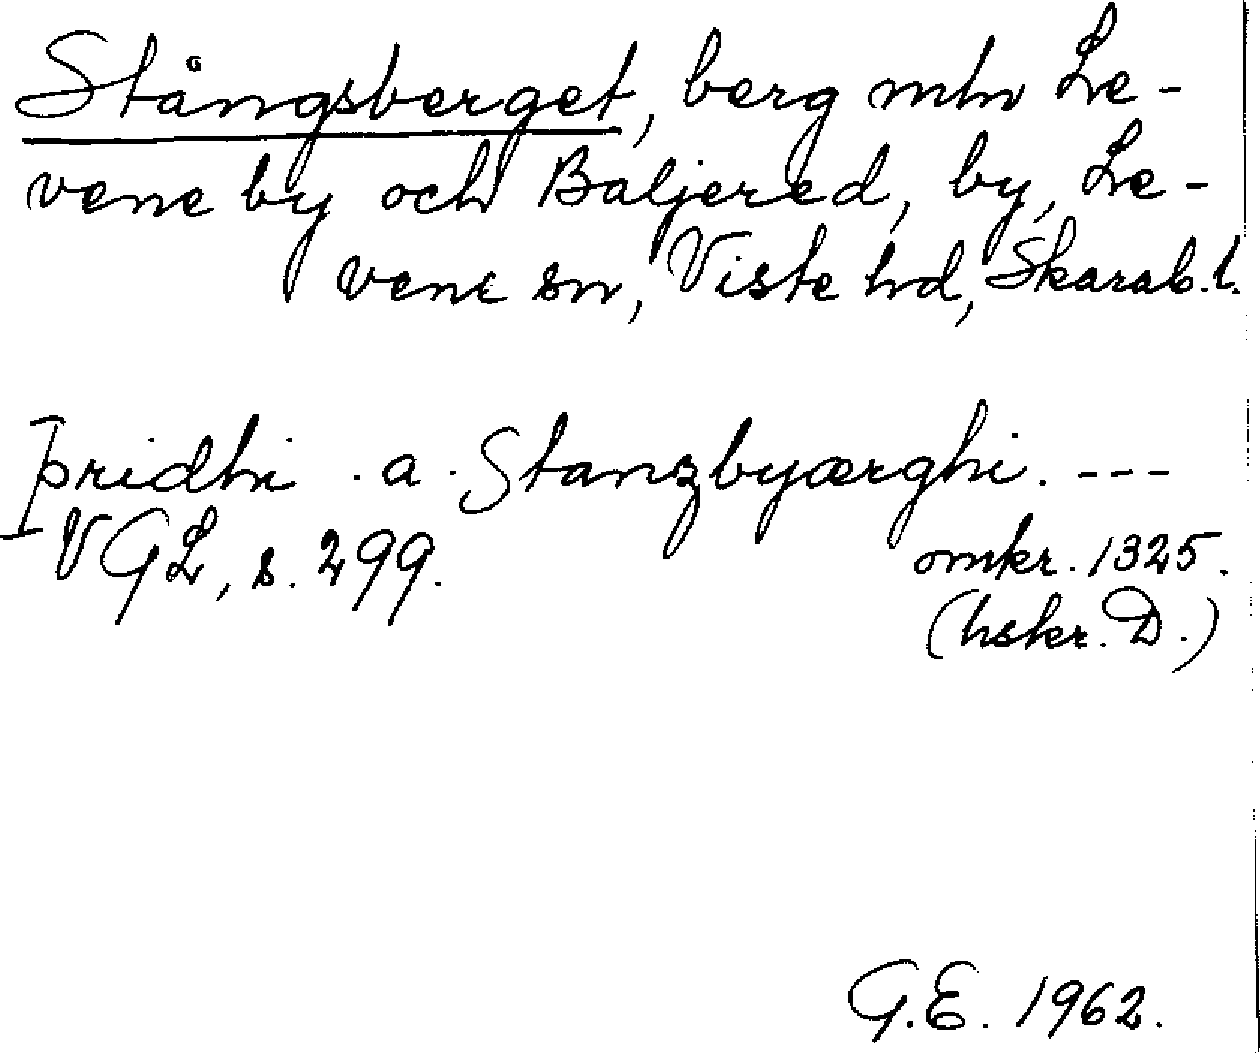 Stångsberget, berg mln Le-
vene by och Baljered, by, Le-
vene sn, Viste hd, Skarab. l.
Þridhi . a . Stangbyærghi. ---
VGL, s. 299.
omkr. 1325.
(hskr. D.)
G.E. 1962.